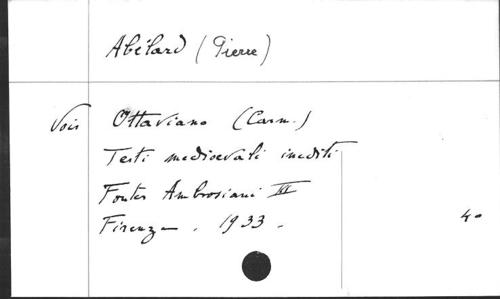 Abélard (Pierre)
Vois Ottaviano (Carm.)
Testi medioevali inediti
Fontes Ambrosiani III
Firenze. 1933.
4°